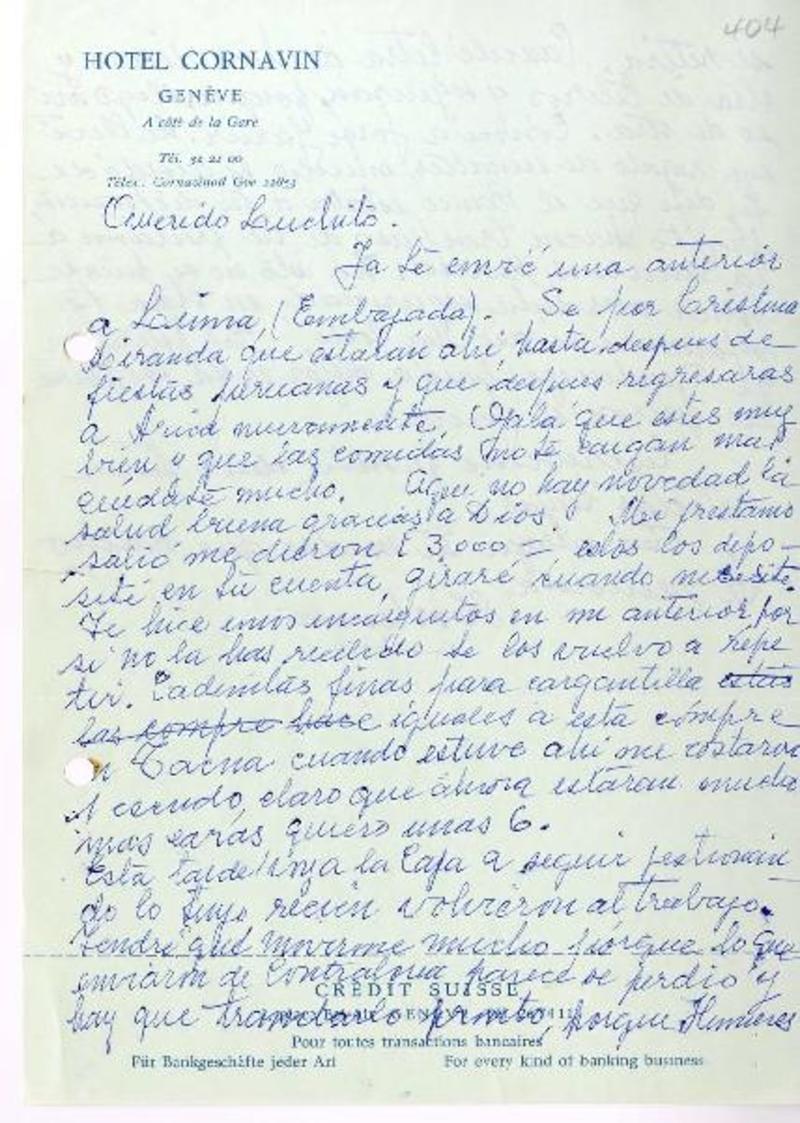 404
HOTEL CORNAVIN
GENÈVE
A côté de la Gare
Tél. 32 21 00
Télex. Cornavinad Gve 22853
Querido Luchito.
Ya te envié una anterior
a Lima, (Embajada). Se por Cristina
Miranda que estarán ahi, hasta despues de
fiestas peruanas y que despues regresaras
a Arica nuevamente. Ojalá que estes muy
bien y que las comidas no te caigan mal
cuidate mucho. Aqui no hay novedad la
salud buena gracias a Dios. Mi prestamo
salió me dieron E 3,000,= estos los depo-
sité en tu cuenta, giraré cuando necesite.
Te hice unos encarguitos en mi anterior por
si no la has recibido te los vuelvo a repe
tir. Cadenitas finas para gargantilla estas
las compre hace iguales a esta compre
en Tacna cuando estuve ahi me costaron
1 escudo, claro que ahora estarán mucho
mas caras quiero unas 6.
Esta tarde la Caja a seguir jestionan
do lo tuyo recien volvieron al trabajo.
Tendré que moverme mucho porque lo que
enviaron de Contraloria parece se perdio y
hay que tramitarlo pronto, porque
CRÉDIT SUISSE
Pour toutes transactions bancaires
Für Bankgeschäfte jeder Art For every kind of banking business